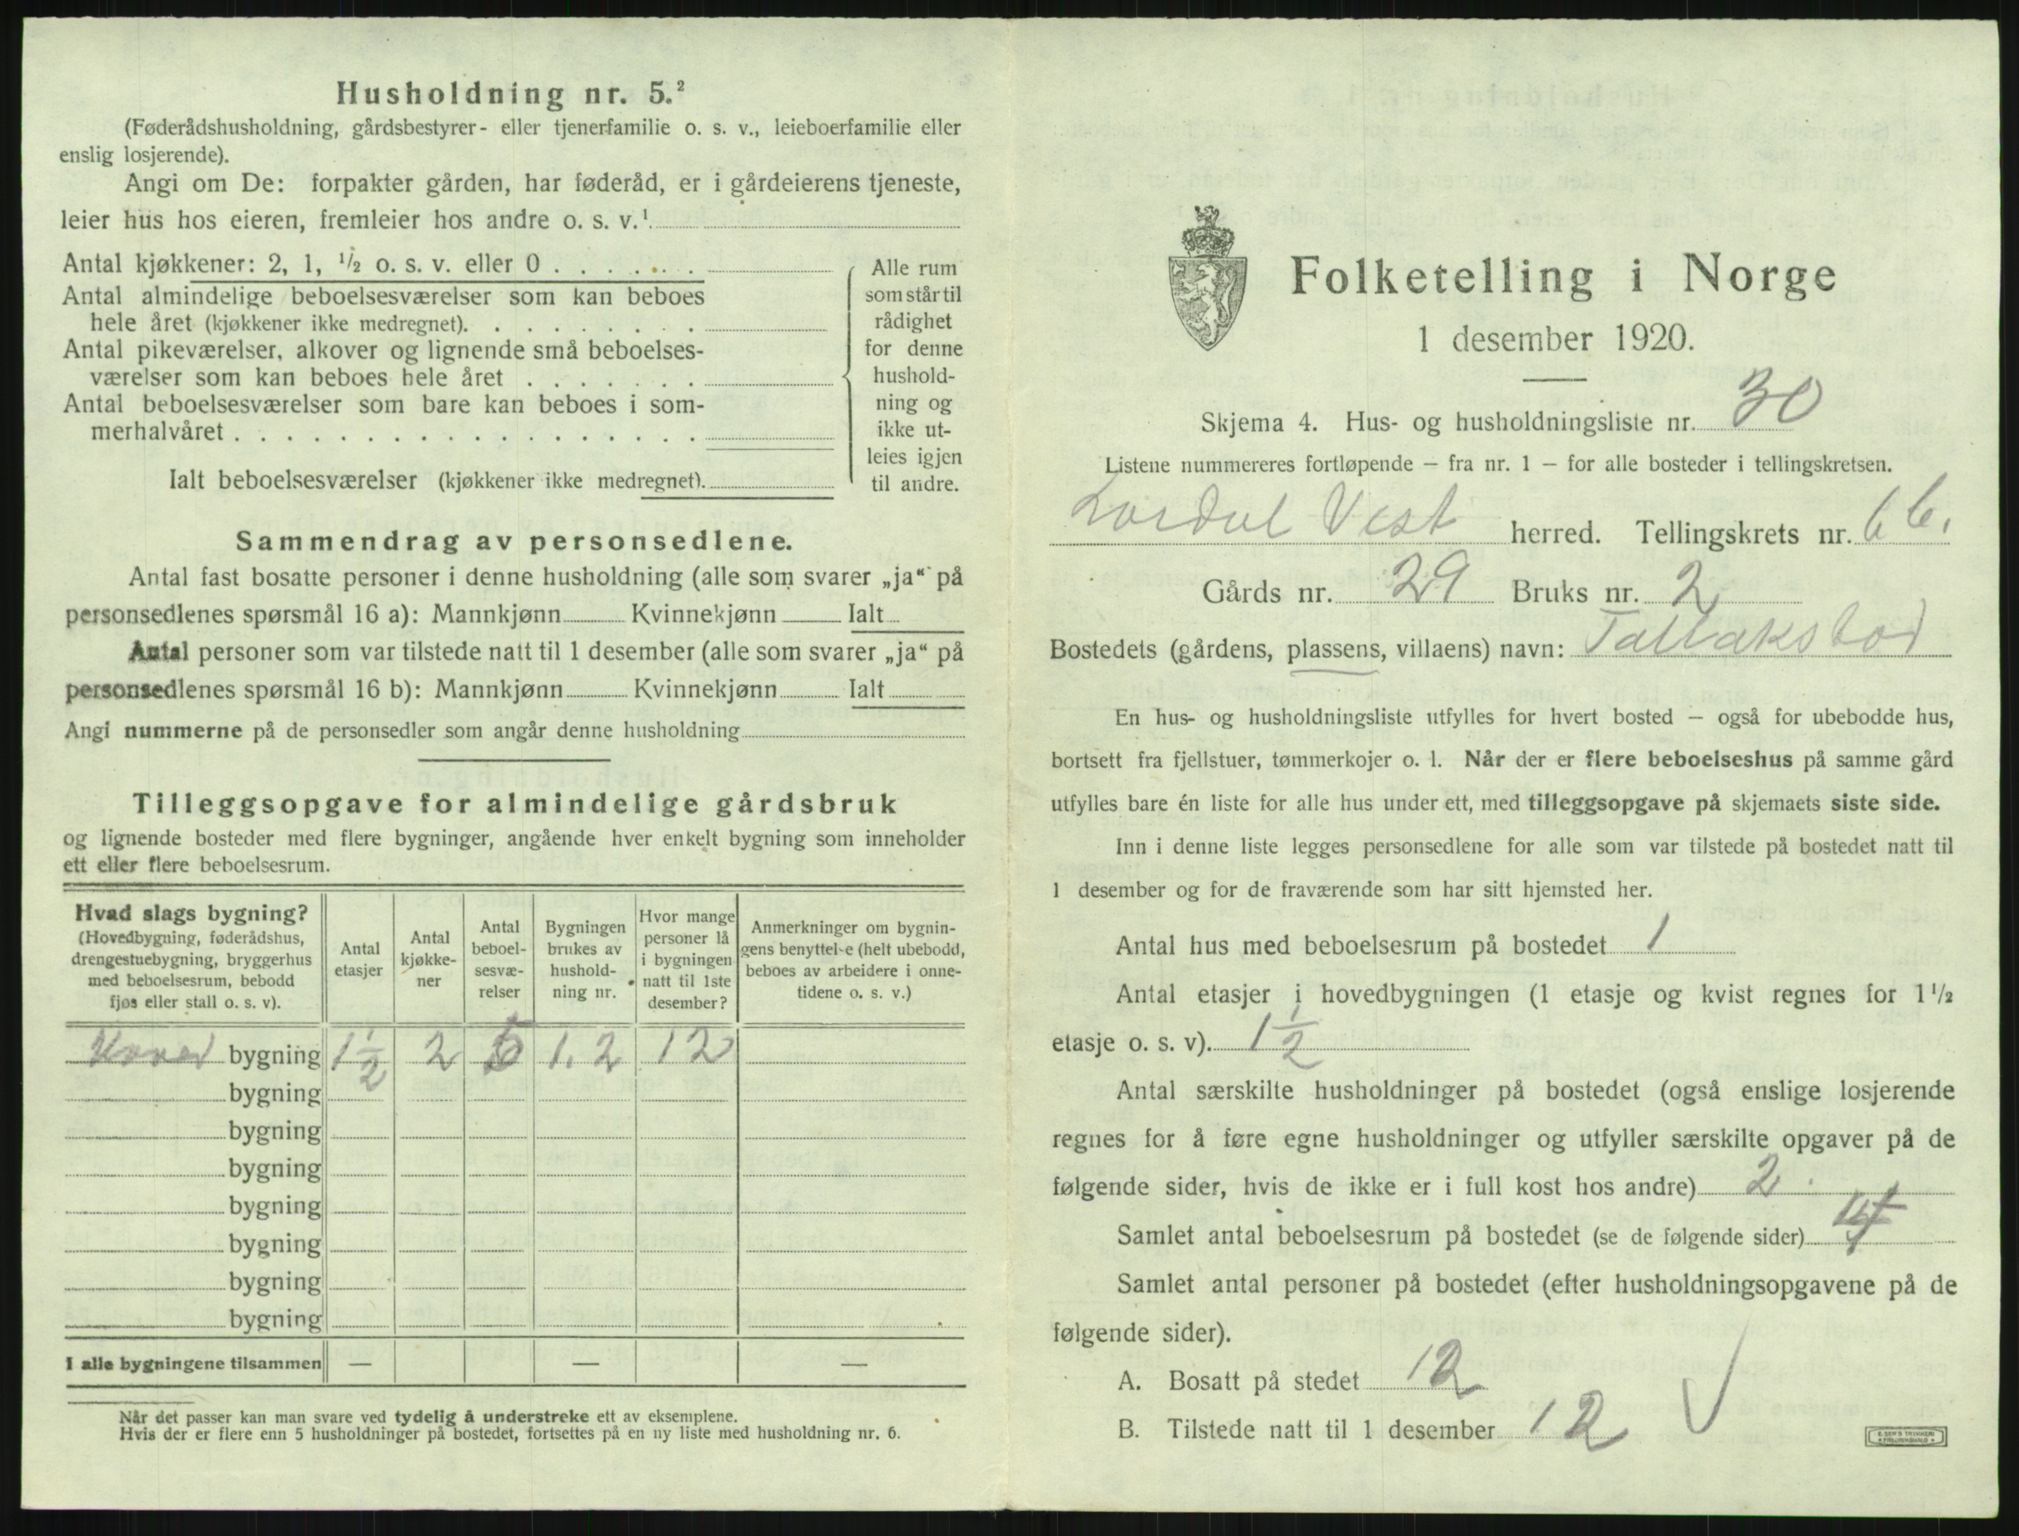 Husholdning nr. 5.²
(Føderådshusholdning, gårdsbestyrer- eller tjenerfamilie o. s. v., leieboerfamilie eller
enslig losjerende).
Angi om De: forpakter gården, har føderåd, er i gårdeierens tjeneste,
leier hus hos eieren, fremleier hos andre o. s. v.¹
Antal kjøkkener: 2, 1, ½ o. s. v. eller 0
Antal almindelige beboelsesværelser som kan beboes
hele året (kjøkkener ikke medregnet).
Antal pikeværelser, alkover og lignende små beboelses-
værelser som kan beboes hele året
Antal beboelsesværelser som bare kan beboes i som-
merhalvåret
Ialt beboelsesværelser (kjøkkener ikke medregnet).
Alle rum
som står til
rådighet
for denne
hushold-
ning og
ikke ut-
leies igjen
til andre.
Sammendrag av personsedlene.
Antal fast bosatte personer i denne husholdning (alle som svarer „ja“ på
personsedlenes spørsmål 16 a): Mannkjønn Kvinnekjønn Ialt
Antal personer som var tilstede natt til 1 desember (alle som svarer „ja“ på
personsedlenes spørsmål 16 b): Mannkjønn Kvinnekjønn Ialt
Angi nummerne på de personsedler som angår denne husholdning
Tilleggsopgave for almindelige gårdsbruk
og lignende bosteder med flere bygninger, angående hver enkelt bygning som inneholder
ett eller flere beboelsesrum.
Hvad slags bygning?
(Hovedbygning, føderådshus,
drengestuebygning, bryggerhus
med beboelsesrum, bebodd
fjøs eller stall o. s. v).
Antal
etasjer
Antal
kjøkke-
ner
Antal
beboel-
sesvæ-
relser
Bygningen
brukes av
hushold-
ning nr.
Hvor mange
personer lå
i bygningen
natt til 1ste
desember?
Anmerkninger om bygnin-
gens benyttelse (helt ubebodd,
beboes av arbeidere i onne-
tidene o. s. v.)
Hoved bygning 1½ 2 5 1.2 12
bygning
bygning
bygning
bygning
bygning
bygning
bygning
I alle bygningene tilsammen — — —
Når det passer kan man svare ved tydelig å understreke ett av eksemplene.
Hvis der er flere enn 5 husholdninger på bostedet, fortsettes på en ny liste med husholdning nr. 6.
Folketelling i Norge
1 desember 1920.
Skjema 4. Hus- og husholdningsliste nr. 30
Listene nummereres fortløpende — fra nr. 1 — for alle bosteder i tellingskretsen.
Vest herred. Tellingskrets nr. 6
Gårds nr. 29 Bruks nr. 2
Bostedets (gårdens, plassens, villaens) navn: Tallaksbod
En hus- og husholdningsliste utfylles for hvert bosted — også for ubebodde hus,
bortsett fra fjellstuer, tømmerkojer o. l. Når der er flere beboelseshus på samme gård
utfylles bare én liste for alle hus under ett, med tilleggsopgave på skjemaets siste side.
Inn i denne liste legges personsedlene for alle som var tilstede på bostedet natt til
1 desember og for de fraværende som har sitt hjemsted her.
Antal hus med beboelsesrum på bostedet 1
Antal etasjer i hovedbygningen (1 etasje og kvist regnes for 1½
etasje o. s. v). 1½
Antal særskilte husholdninger på bostedet (også enslige losjerende
regnes for å føre egne husholdninger og utfyller særskilte opgaver på de
følgende sider, hvis de ikke er i full kost hos andre) 2.
Samlet antal beboelsesrum på bostedet (se de følgende sider)
Samlet antal personer på bostedet (efter husholdningsopgavene på de
følgende sider).
A. Bosatt på stedet 12
B. Tilstede natt til 1 desember 12